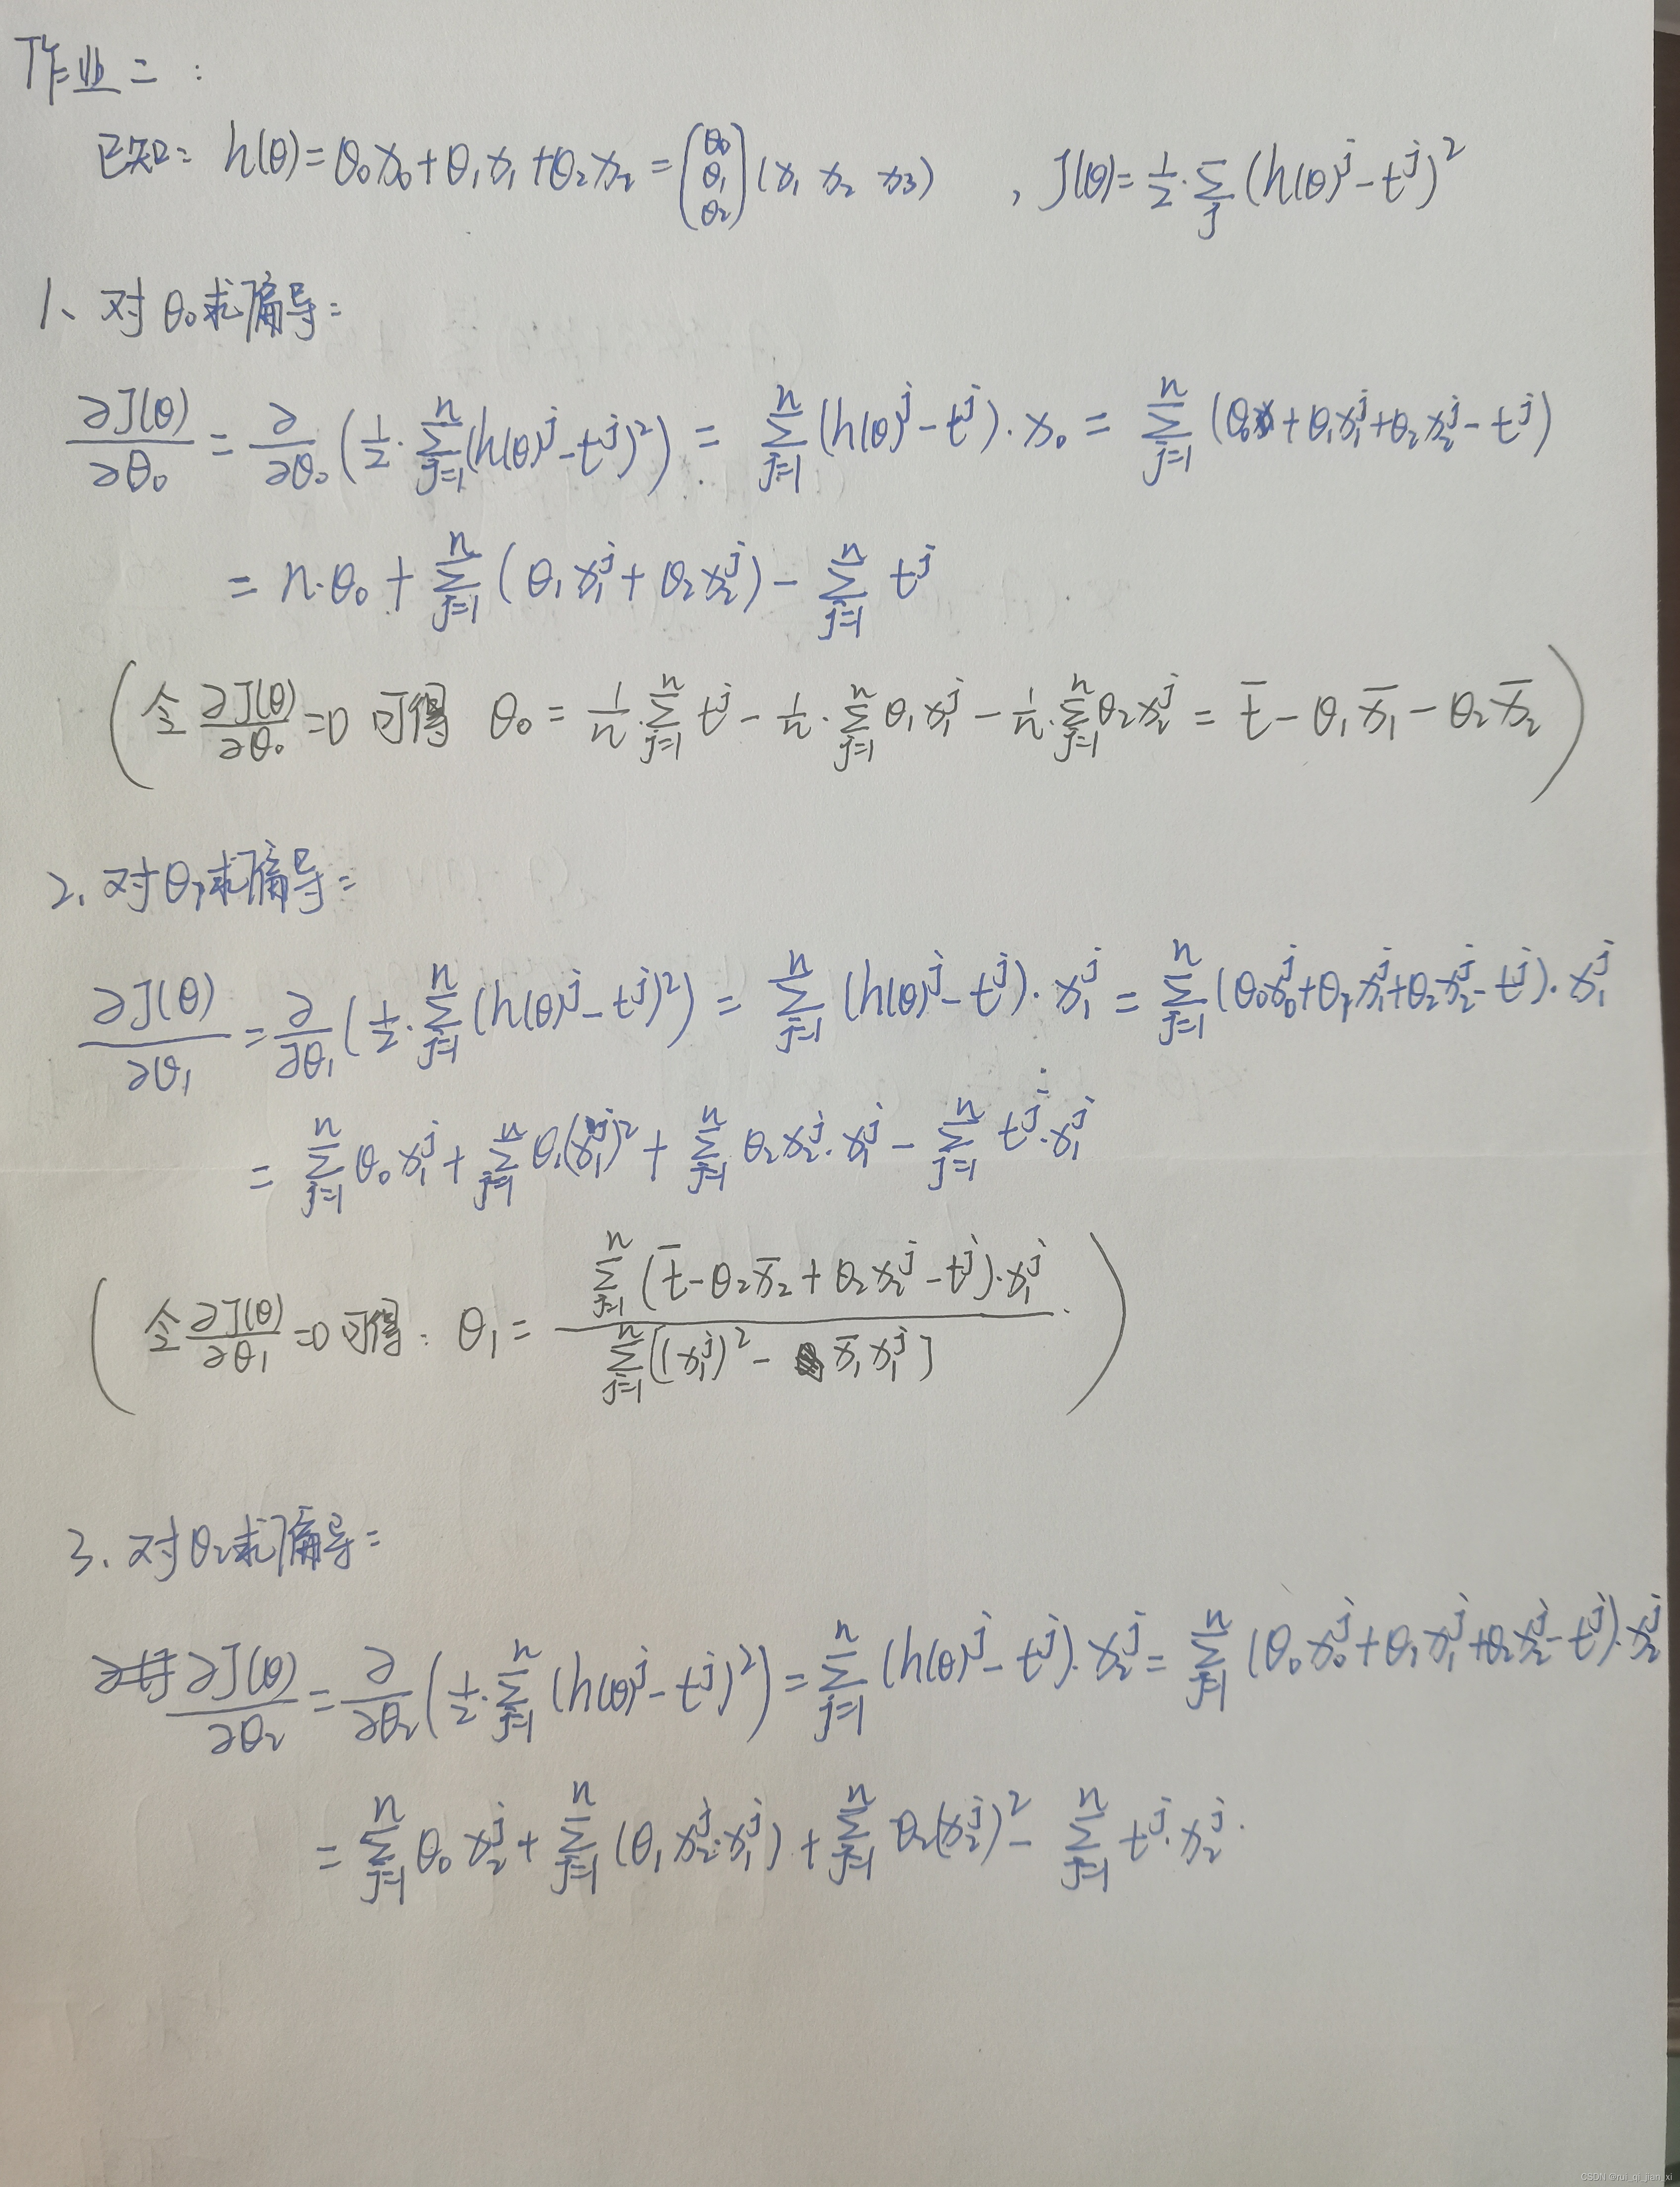 作业二：
已知： h(θ)=θ₀x₀+θ₁x₁+θ₂x₂=(θ₀ θ₁ θ₂)(x₁ x₂ x₃) ，J(θ)=1/2·∑_j(h(θ)^j-t^j)²
1、对θ₀求偏导：
∂J(θ)/∂θ₀=∂/∂θ₀(1/2·∑_{j=1}^n(h(θ)^j-t^j)²)=∑_{j=1}^n(h(θ)^j-t^j)·x₀=∑_{j=1}^n(θ₀+θ₁x₁^j+θ₂x₂^j-t^j)
=n·θ₀+∑_{j=1}^n(θ₁x₁^j+θ₂x₂^j)-∑_{j=1}^n t^j
(令∂J(θ)/∂θ₀=0 可得 θ₀=1/n·∑_{j=1}^n t^j-1/n·∑_{j=1}^n θ₁x₁^j-1/n·∑_{j=1}^n θ₂x₂^j=t̄-θ₁x̄₁-θ₂x̄₂)
2、对θ₁求偏导：
∂J(θ)/∂θ₁=∂/∂θ₁(1/2·∑_{j=1}^n(h(θ)^j-t^j)²)=∑_{j=1}^n(h(θ)^j-t^j)·x₁^j=∑_{j=1}^n(θ₀x₀^j+θ₁x₁^j+θ₂x₂^j-t^j)·x₁^j
=∑_{j=1}^n θ₀x₁^j+∑_{j=1}^n θ₁(x₁^j)²+∑_{j=1}^n θ₂x₂^j·x₁^j-∑_{j=1}^n t^j·x₁^j
(令∂J(θ)/∂θ₁=0 可得：θ₁=∑_{j=1}^n(t̄-θ₂x̄₂+θ₂x₂^j-t^j)·x₁^j/∑_{j=1}^n[(x₁^j)²-x̄₁x₁^j].)
3、对θ₂求偏导：
∂J(θ)/∂θ₂=∂/∂θ₂(1/2·∑_{j=1}^n(h(θ)^j-t^j)²)=∑_{j=1}^n(h(θ)^j-t^j)·x₂^j=∑_{j=1}^n(θ₀x₀^j+θ₁x₁^j+θ₂x₂^j-t^j)·x₂^j
=∑_{j=1}^n θ₀x₂^j+∑_{j=1}^n(θ₁x₂^j·x₁^j)+∑_{j=1}^n θ₂(x₂^j)²-∑_{j=1}^n t^j·x₂^j.
CSDN @rui_qi_jian_xi